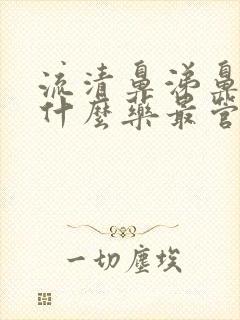 流清鼻涕鼻
什麼藥最管
一切塵埃